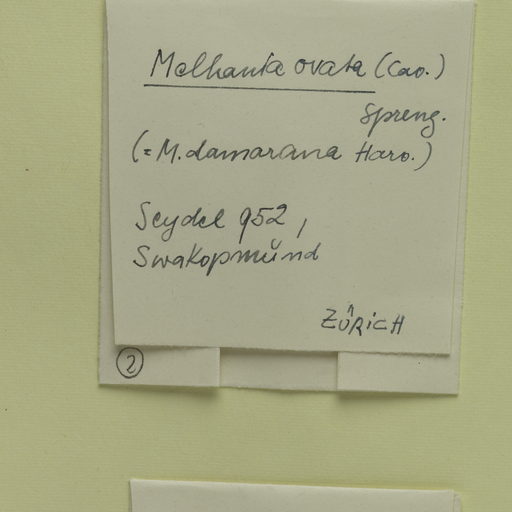 Melhania ovata (Cav.)
Spreng.
(= M. damarana Harv.)
Seydel 952,
Swakopmünd
ZÜRICH
2